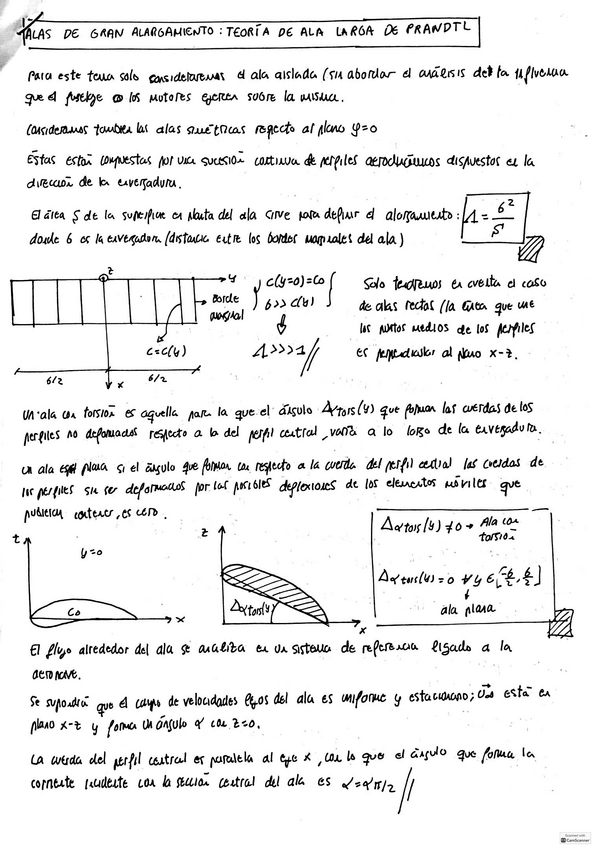 ALAS DE GRAN ALARGAMIENTO: TEORÍA DE ALA LARGA DE PRANDTL
Para este tema solo consideraremos el ala aislada (sin abordar el análisis de la influencia
que el fuselaje o los motores ejercen sobre la misma.
Consideramos también las alas simétricas respecto al plano y=0
Estas están compuestas por una sucesión continua de perfiles aerodinámicos dispuestos en la
dirección de la envergadura.
El área S de la superficie en planta del ala sirve para definir el alargamiento: Λ = b²/S
donde b es la envergadura (distancia entre los bordes marginales del ala)
z
y
Borde
marginal
c=c(y)
b/2
x
b/2
c(y=0)=c0
b>>c(y)
⇓
Λ>>>1
Solo tendremos en cuenta el caso
de alas rectas (la línea que une
los puntos medios de los perfiles
es perpendicular al plano x-z.
Un ala con torsión es aquella para la que el ángulo Δαtors(y) que forman las cuerdas de los
perfiles no deformados respecto a la del perfil central, varía a lo largo de la envergadura.
Un ala es plana si el ángulo que forman con respecto a la cuerda del perfil central las cuerdas de
los perfiles sin ser deformados por las posibles deflexiones de los elementos móviles que
pudieran contener, es cero.
t
y=0
C0
x
z
Δαtors(y)
x
Δαtors(y) ≠0 → Ala con
torsión
Δαtors(y)=0 ∀ y ∈ [-b/2, b/2]
↓
ala plana
El flujo alrededor del ala se analiza en un sistema de referencia ligado a la
aeronave.
Se supondrá que el campo de velocidades lejos del ala es uniforme y estacionario; U∞ está en
plano x-z y forma un ángulo α con z=0.
La cuerda del perfil central es paralela al eje x, con lo que el ángulo que forma la
corriente incidente con la sección central del ala es α=απ/2
Scanned with
CamScanner